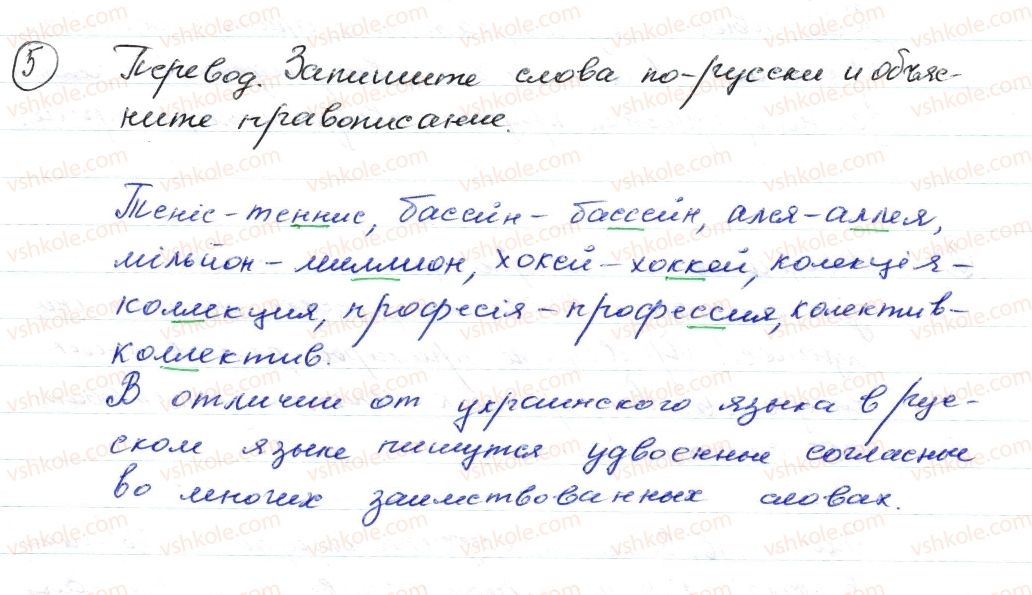 5 Перевод. Запишите слова по-русски и объяс-
ните правописание.
Теніс - теннис, басейн - бассейн, алея - аллея,
мільйон - миллион, хокей - хоккей, колекція -
коллекция, професія - профессия, колектив -
коллектив.
В отличии от украинского языка в рус-
ском языке пишутся удвоенные согласные
во многих заимствованных словах.